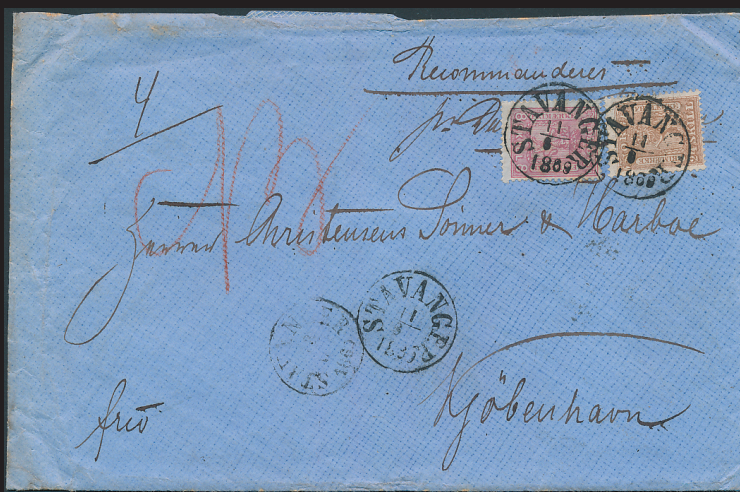 4
Recommanderes
pr
STAVANGER
11
1869
STAVANGER
11
1869
Herrer Christensens Sönner & Marboe
STAVANGER
11
STAVANGER
frio
Kjöbenhavn